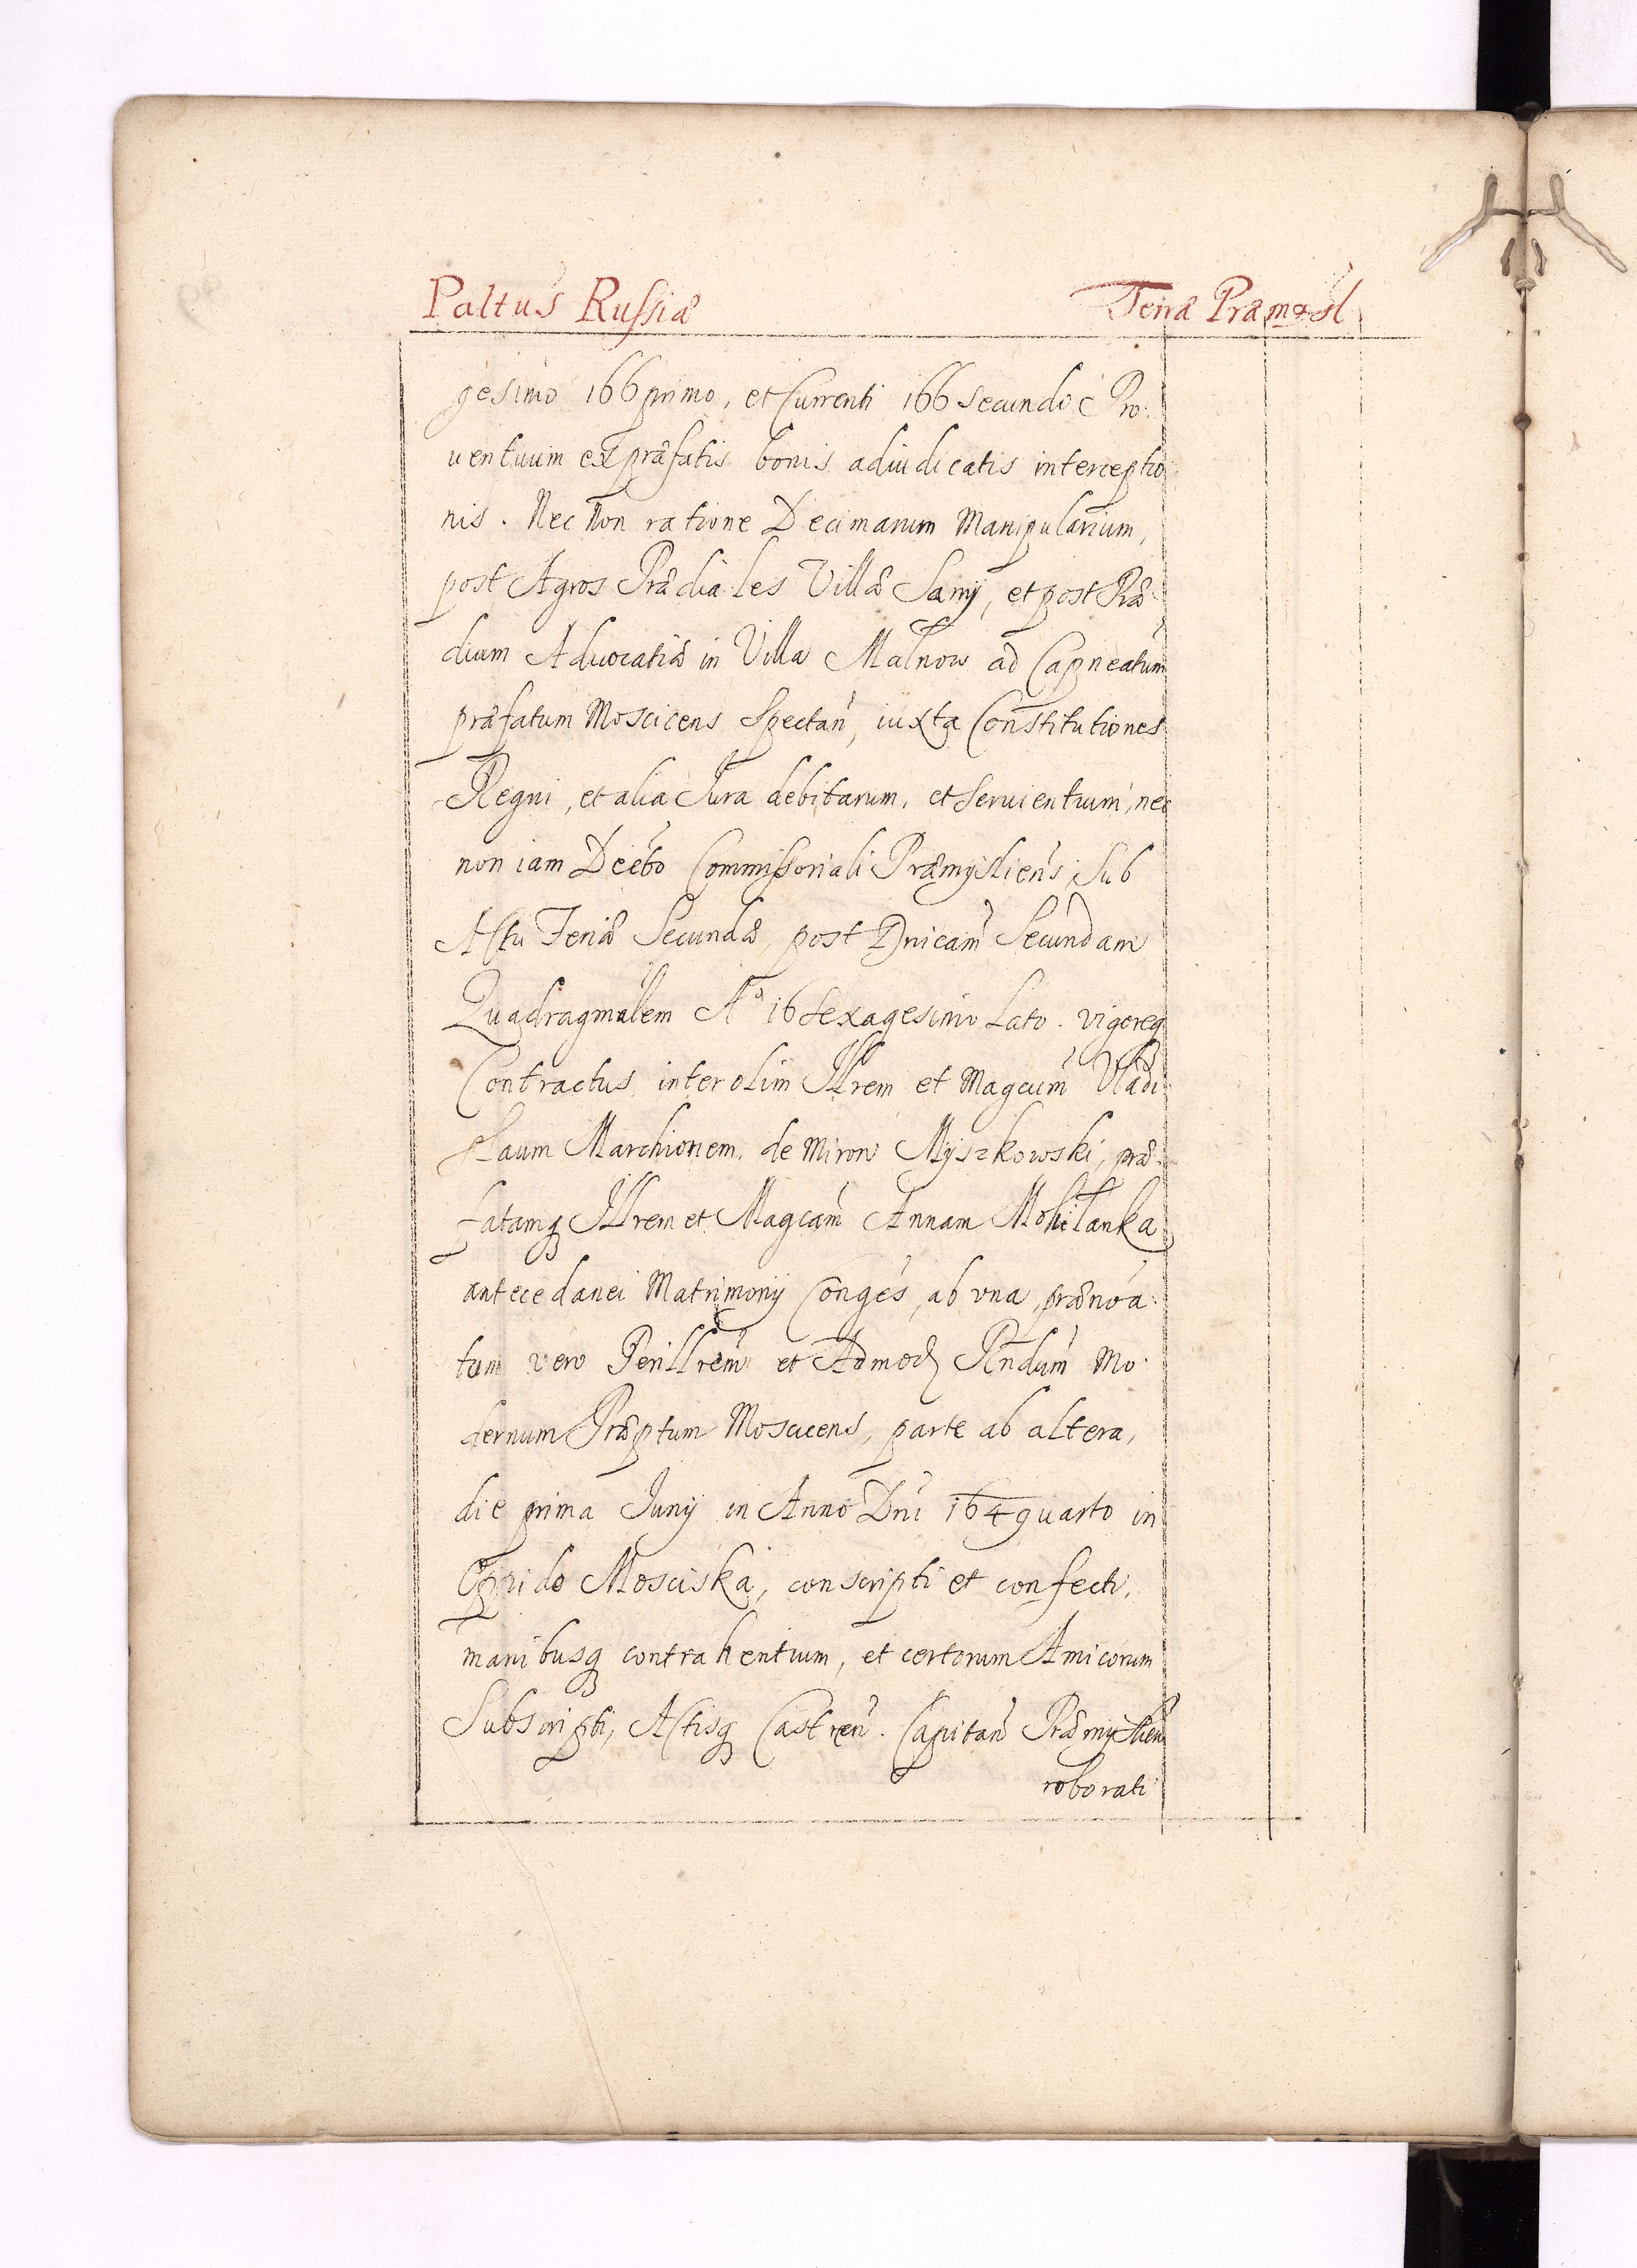 Paltus Russiæ Terræ Præmysl
gesimo 166 primo, et Currenti 166 secundo Pro-
uentuum ex præfatis bonis adiudicatis interceptio
nis. Nec Non ratione Decimarum Manipularium,
post Agros Prædiales Villæ Sanij, et post Præ-
dium Aduocatiæ in Villa Malnow ad Capneatum
præfatum Moscicens Spectan, iuxta Constitutiones
Regni, et alia Iura debitarum, et seruientium, nec
non iam Decto Commissoriali Præmysliens, Sub
Actu Feriæ Secundæ, post Dnicam Secundam
Quadragmalem Aº 16 sexagesimo Lato. vigoreq
Contractus inter olim Illrem et Magcum Vladi
slaum Marchionem de Mirow Myszkowski, præ-
fatamq Illrem et Magcam Annam Mohilanka
antecedanei Matrimonij Conges, ab vna, prænoa-
tum vero Perillrem et Admod Rndum Mo-
dernum Præptum Moscicens, parte ab altera,
die prima Junij in Anno Dni 164 quarto in
Oppido Mosciska, conscripti et confecti,
manibusq contrahentium, et certorum Amicorum
Subscripti, Actisq Castren. Capitan Præmyslien
roborati